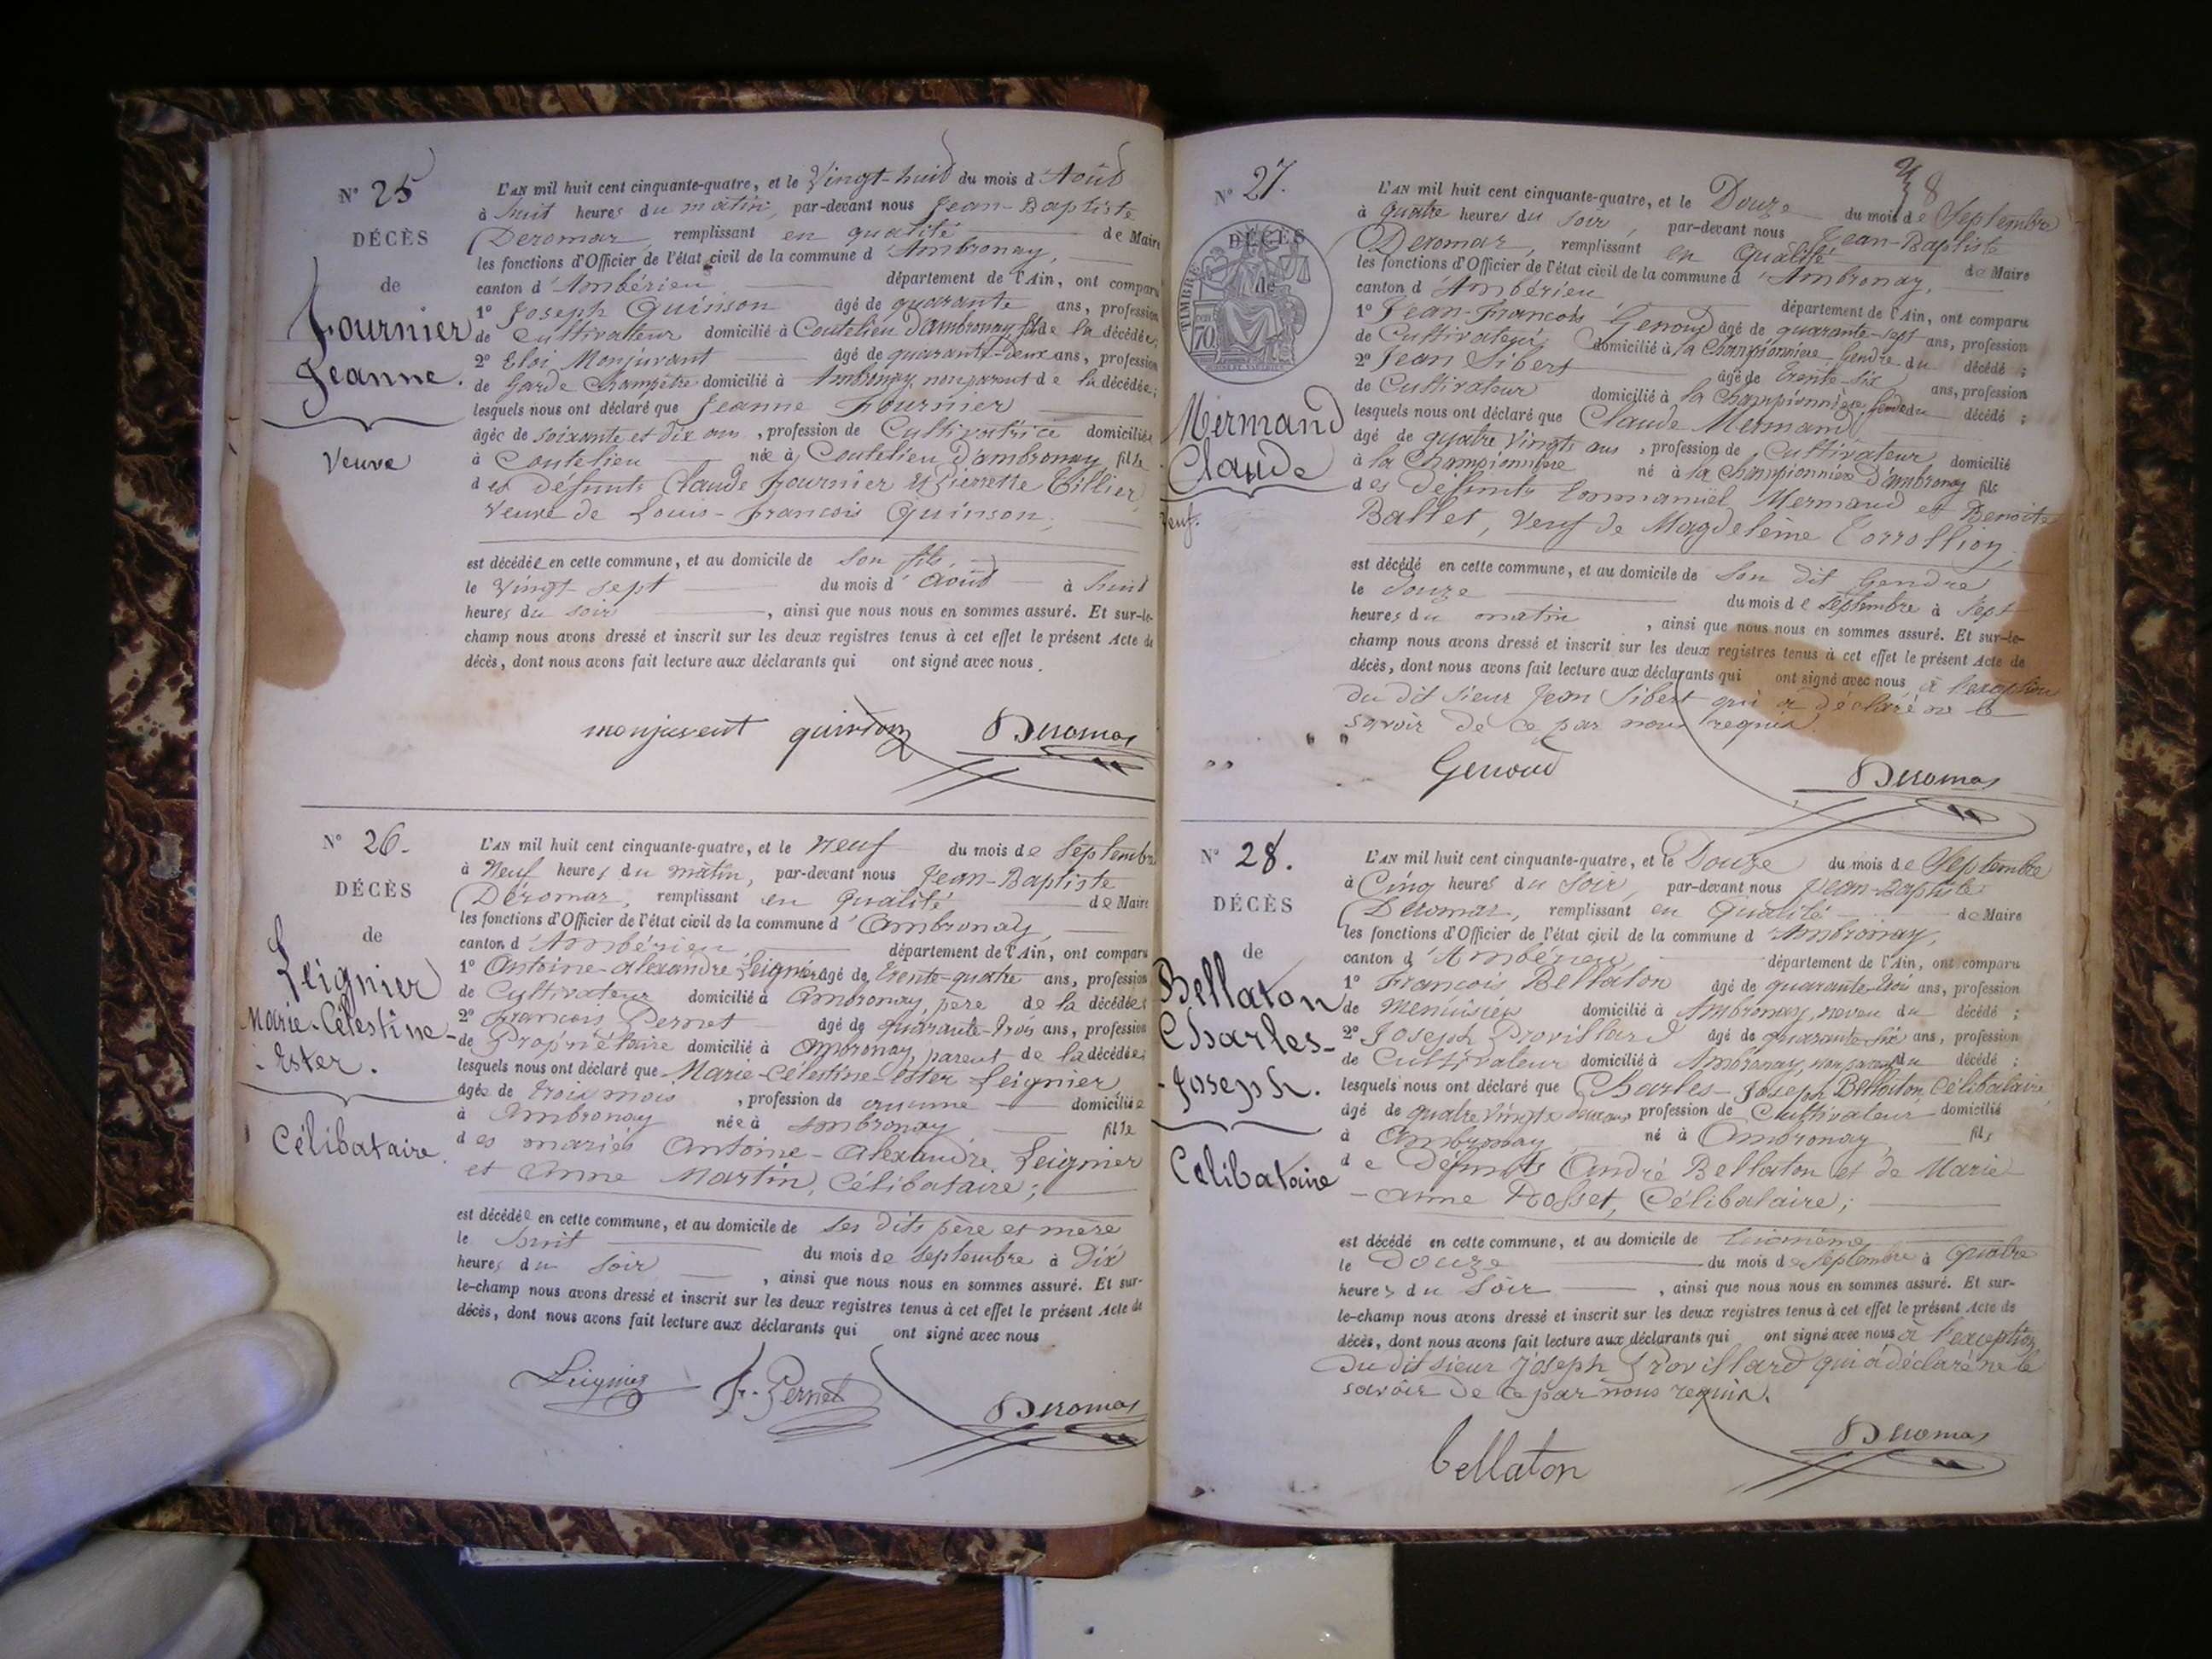 N° 25
DÉCÈS
de
Fournier
Jeanne.
Veuve
L'AN mil huit cent cinquante-quatre, et le Vingt-huit du mois d'Août
à huit heures du matin, par-devant nous Jean-Baptiste
Deromas, remplissant en qualité de Maire
les fonctions d'Officier de l'état civil de la commune d'Ambronay,
canton d'Ambérieu département de l'Ain, ont comparu
1° Joseph Quinson âgé de quarante ans, profession
de Cultivateur domicilié à Coutelieu d'ambronay fils de la décédée;
2° Eloi Monjuvant âgé de quarante-deux ans, profession
de Garde Champêtre domicilié à Ambronay, non parent de la décédée;
lesquels nous ont déclaré que Jeanne Fournier
âgée de soixante et dix ans, profession de Cultivatrice domiciliée
à Coutelieu née à Coutelieu D'ambronay fille
des défunts Claude Fournier et Pierrette Tillier
Veuve de Louis-François Quinson;
est décédée en cette commune, et au domicile de son fils,
le Vingt-sept du mois d'Août à huit
heures du soir, ainsi que nous nous en sommes assuré. Et sur-le-
champ nous avons dressé et inscrit sur les deux registres tenus à cet effet le présent Acte de
décès, dont nous avons fait lecture aux déclarants qui ont signé avec nous.
monjuvent quinson Deromas
N° 26.
DÉCÈS
de
Leignier
Marie-Célestine-
-Ester.
Célibataire.
L'AN mil huit cent cinquante-quatre, et le neuf du mois de Septembre
à Neuf heures du matin, par-devant nous Jean-Baptiste
Déromas, remplissant en Qualité de Maire
les fonctions d'Officier de l'état civil de la commune d'Ambronay,
canton d'Ambérieu département de l'Ain, ont comparu
1° Antoine-Alexandre Leignier âgé de trente-quatre ans, profession
de Cultivateur domicilié à Ambronay, père de la décédée;
2° François Pernet âgé de quarante-trois ans, profession
de Propriétaire domicilié à Ambronay, parent de la décédée;
lesquels nous ont déclaré que Marie-Célestine-Ester Leignier
âgée de trois mois, profession de aucune domiciliée
à Ambronay née à Ambronay fille
des mariés Antoine-Alexandre Leignier
et Anne Martin, Célibataire;
est décédée en cette commune, et au domicile de ses dits père et mère
le huit du mois de Septembre à Dix
heures du soir, ainsi que nous nous en sommes assuré. Et sur-
le-champ nous avons dressé et inscrit sur les deux registres tenus à cet effet le présent Acte de
décès, dont nous avons fait lecture aux déclarants qui ont signé avec nous
Leignier fr. Pernet Deromas
38
N° 27.
DÉCÈS
de
TIMBRE
70
Mermand
Claude
Veuf.
L'AN mil huit cent cinquante-quatre, et le Douze du mois de Septembre
à quatre heures du soir, par-devant nous Jean-Baptiste
Deromas, remplissant en Qualité de Maire
les fonctions d'Officier de l'état civil de la commune d'Ambronay,
canton d'Ambérieu département de l'Ain, ont comparu
1° Jean-François Genoud âgé de quarante-sept ans, profession
de Cultivateur, domicilié à la Championnière Gendre du décédé;
2° Jean Sibert âgé de trente-six ans, profession
de Cultivateur domicilié à la Championnière, gendre du décédé;
lesquels nous ont déclaré que Claude Mermand
âgé de quatre Vingts ans, profession de Cultivateur domicilié
à la Championnière né à la Championnière D'ambronay fils
des défunts Emmanuel Mermand et Benoite
Ballet, Veuf de Magdeleine Corrollion
est décédé en cette commune, et au domicile de son dit Gendre
le Douze du mois de Septembre à Sept
heures du matin, ainsi que nous nous en sommes assuré. Et sur-le-
champ nous avons dressé et inscrit sur les deux registres tenus à cet effet le présent Acte de
décès, dont nous avons fait lecture aux déclarants qui ont signé avec nous à l'exception
du dit sieur Jean Sibert qui a déclaré ne le
savoir de ce par nous requis.
Genoud Deromas
N° 28.
DÉCÈS
de
Bellaton
Charles-
-Joseph.
Célibataire
L'AN mil huit cent cinquante-quatre, et le Douze du mois de Septembre
à Cinq heures du Soir, par-devant nous Jean-Baptiste
Deromas, remplissant en Qualité de Maire
les fonctions d'Officier de l'état civil de la commune d'Ambronay,
canton d'Ambérieu, département de l'Ain, ont comparu
1° François Bellaton âgé de quarante-trois ans, profession
de menuisier domicilié à Ambronay, neveu du décédé;
2° Joseph Provillard âgé de quarante six ans, profession
de Cultivateur domicilié à Ambronay, non parent du décédé;
lesquels nous ont déclaré que Charles-Joseph Bellaton, Célibataire,
âgé de quatre Vingts deux ans, profession de Cultivateur domicilié
à Ambronay né à Ambronay fils
de Défunts André Bellaton et de Marie
-Anne Rosset, Célibataire;
est décédé en cette commune, et au domicile de lui même
le Douze du mois de Septembre à quatre
heures du Soir, ainsi que nous nous en sommes assuré. Et sur-
le-champ nous avons dressé et inscrit sur les deux registres tenus à cet effet le présent Acte de
décès, dont nous avons fait lecture aux déclarants qui ont signé avec nous à l'exception
du dit sieur Joseph Provillard qui a déclaré ne le
savoir de ce par nous requis.
bellaton Deromas